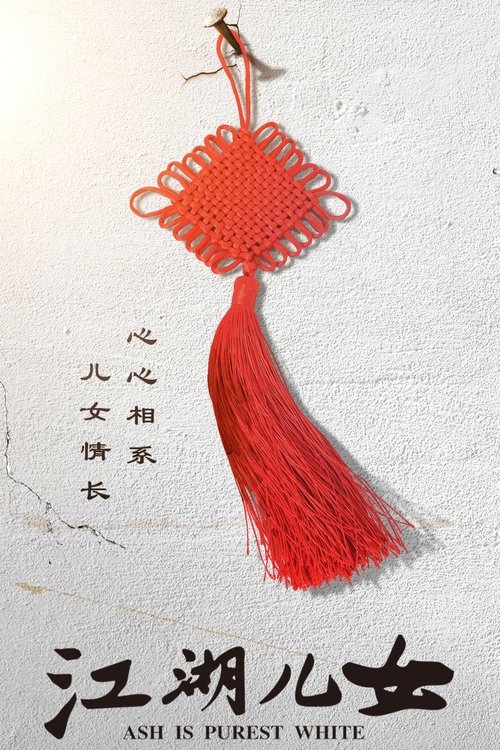 心心相系
儿女情长
江湖儿女
ASH IS PUREST WHITE